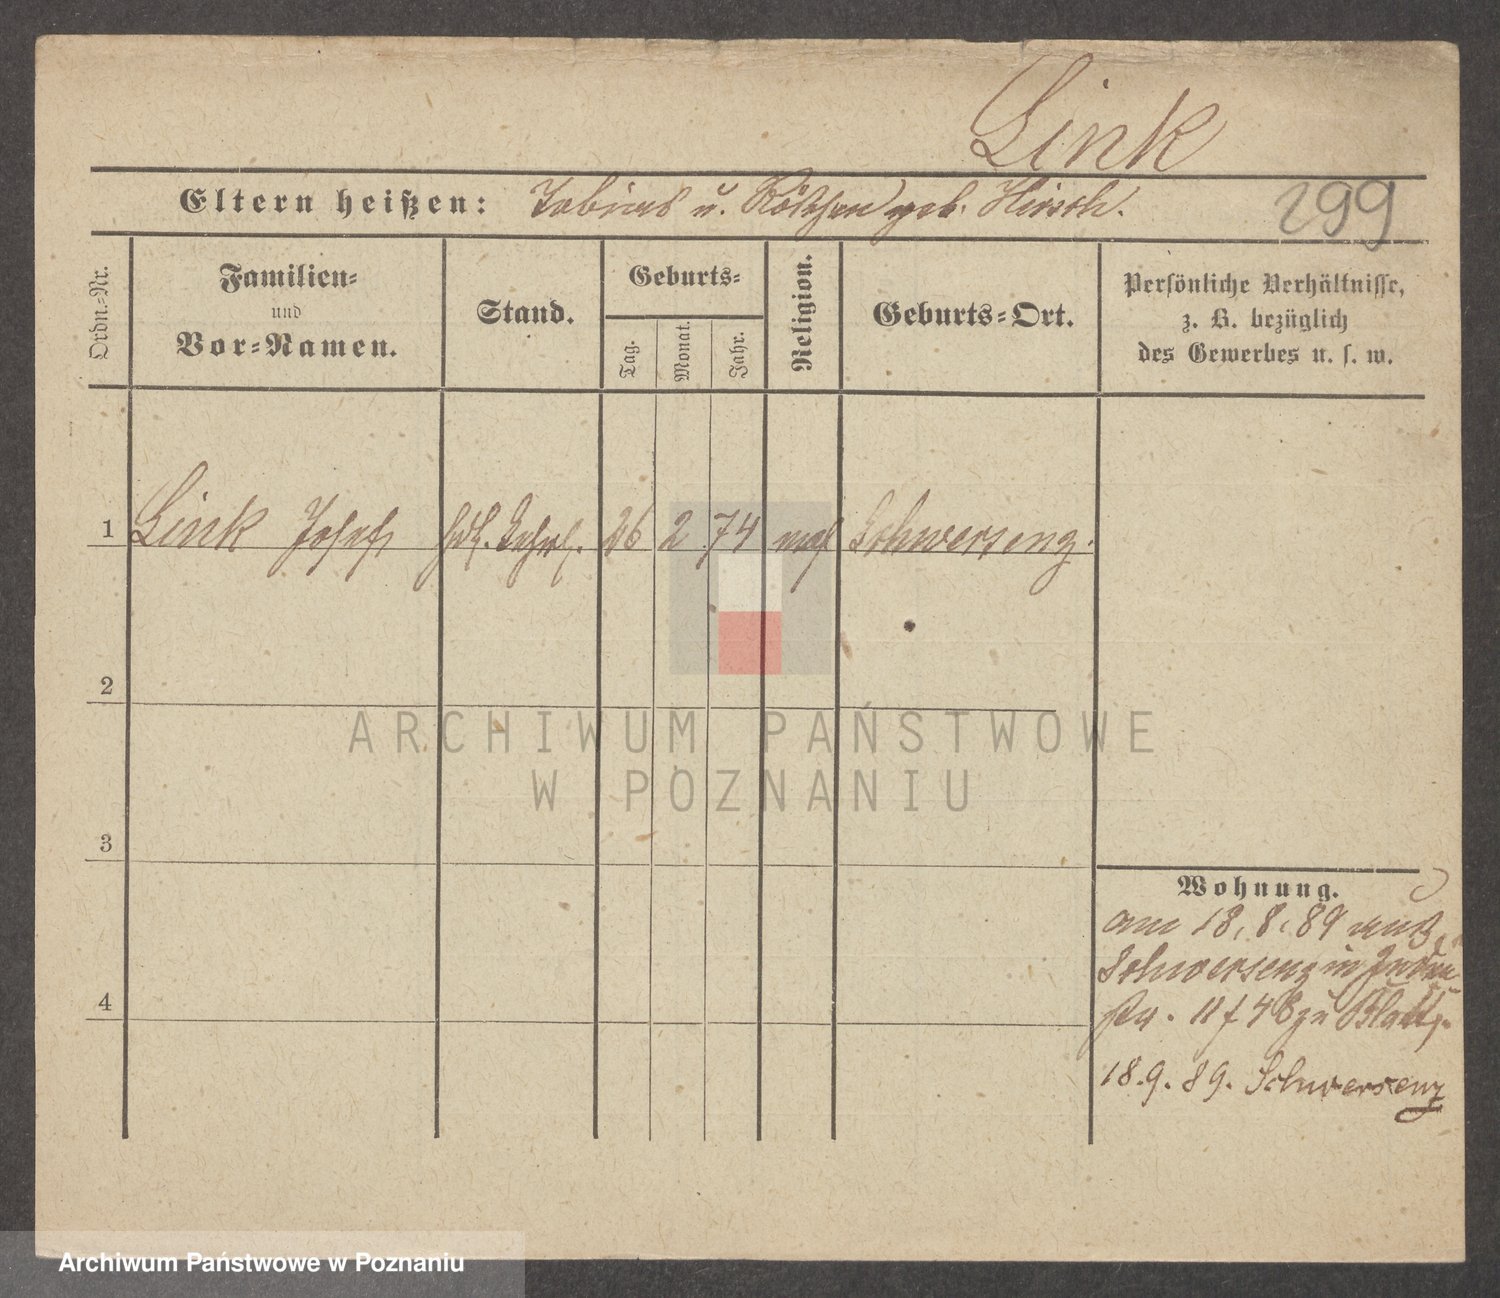 Link
Eltern heißen: Tobias u. Röschen geb. Hirsch.
299
Ordn.-Nr.
Familien-
und
Vor-Namen.
Stand.
Geburts-
Tag.
Monat.
Jahr.
Religion.
Geburts-Ort.
Persönliche Verhältnisse,
z. B. bezüglich
des Gewerbes u. s. w.
1 Link Josef Hdl. Lehrl. 26 2 74 mos Schwersenz.
2
ARCHIWUM PAŃSTWOWE
W POZNANIU
3
Wohnung.
am 18. 8. 89 aus
Schwersenz in Juden
str. 11 zu
4
18. 9. 89. Schwersenz
Archiwum Państwowe w Poznaniu